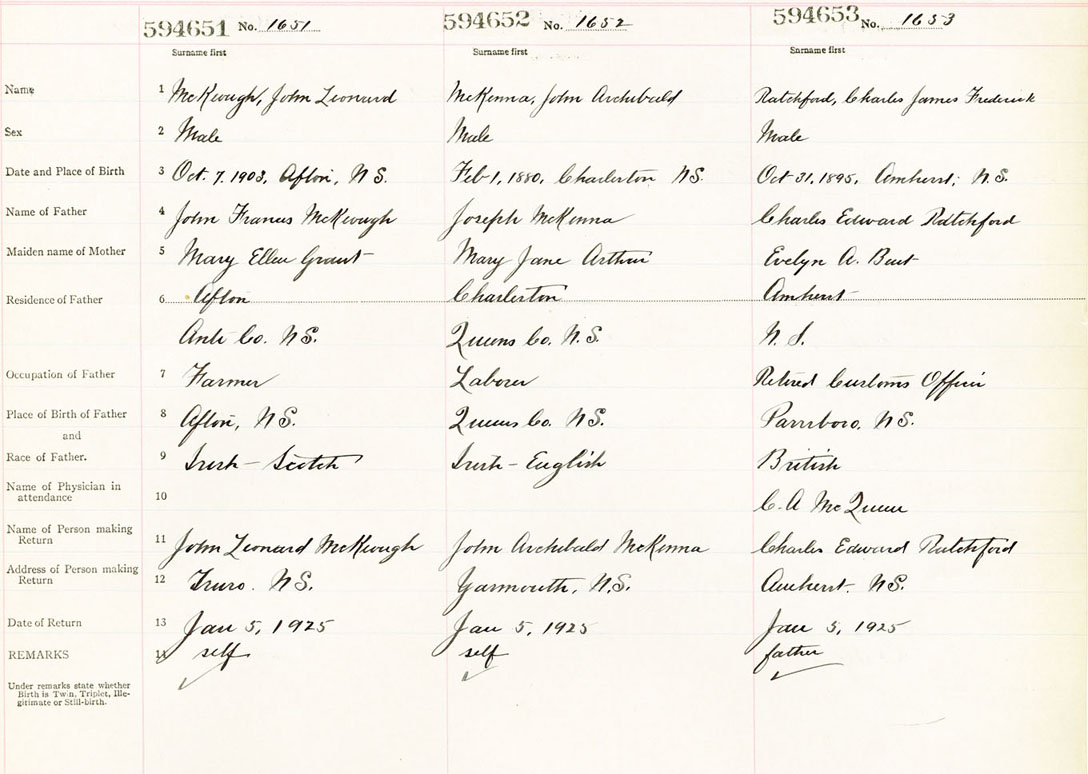 594651 No. 1651 594652 No. 1652 594653 No. 1653
Surname first Surname first Surname first
Name 1 McKeough, John Leonard McKenna, John Archibald Ratchford, Charles James Frederick
Sex 2 Male Male Male
Date and Place of Birth 3 Oct. 7. 1903, Afton, N S. Feb 1, 1880, Charleston NS. Oct 31, 1895, Amherst, N.S.
Name of Father 4 John Francis McKeough Joseph McKenna Charles Edward Ratchford
Maiden name of Mother 5 Mary Ellen Grant Mary Jane Arthur Evelyn A.
Residence of Father 6 Afton Charleston Amherst
Anti Co. N S. Queens Co. N. S. N. S.
Occupation of Father 7 Farmer Laborer Retired Customs Officer
Place of Birth of Father 8 Afton, N S. Queens Co. N S. Parrsboro, N S.
and
Race of Father. 9 Irish - Scotch Irish - English British
Name of Physician in
attendance 10 C. A McQueen
Name of Person making
Return 11 John Leonard McKeough John Archibald McKenna Charles Edward Ratchford
Address of Person making
Return 12 Truro. N S. Yarmouth, N.S. Amherst. N S.
Date of Return 13 Jan 5, 1925 Jan 5, 1925 Jan 5, 1925
REMARKS 14 self self father
Under remarks state whether
Birth is Twin, Triplet, Ille-
gitimate or Still-birth.